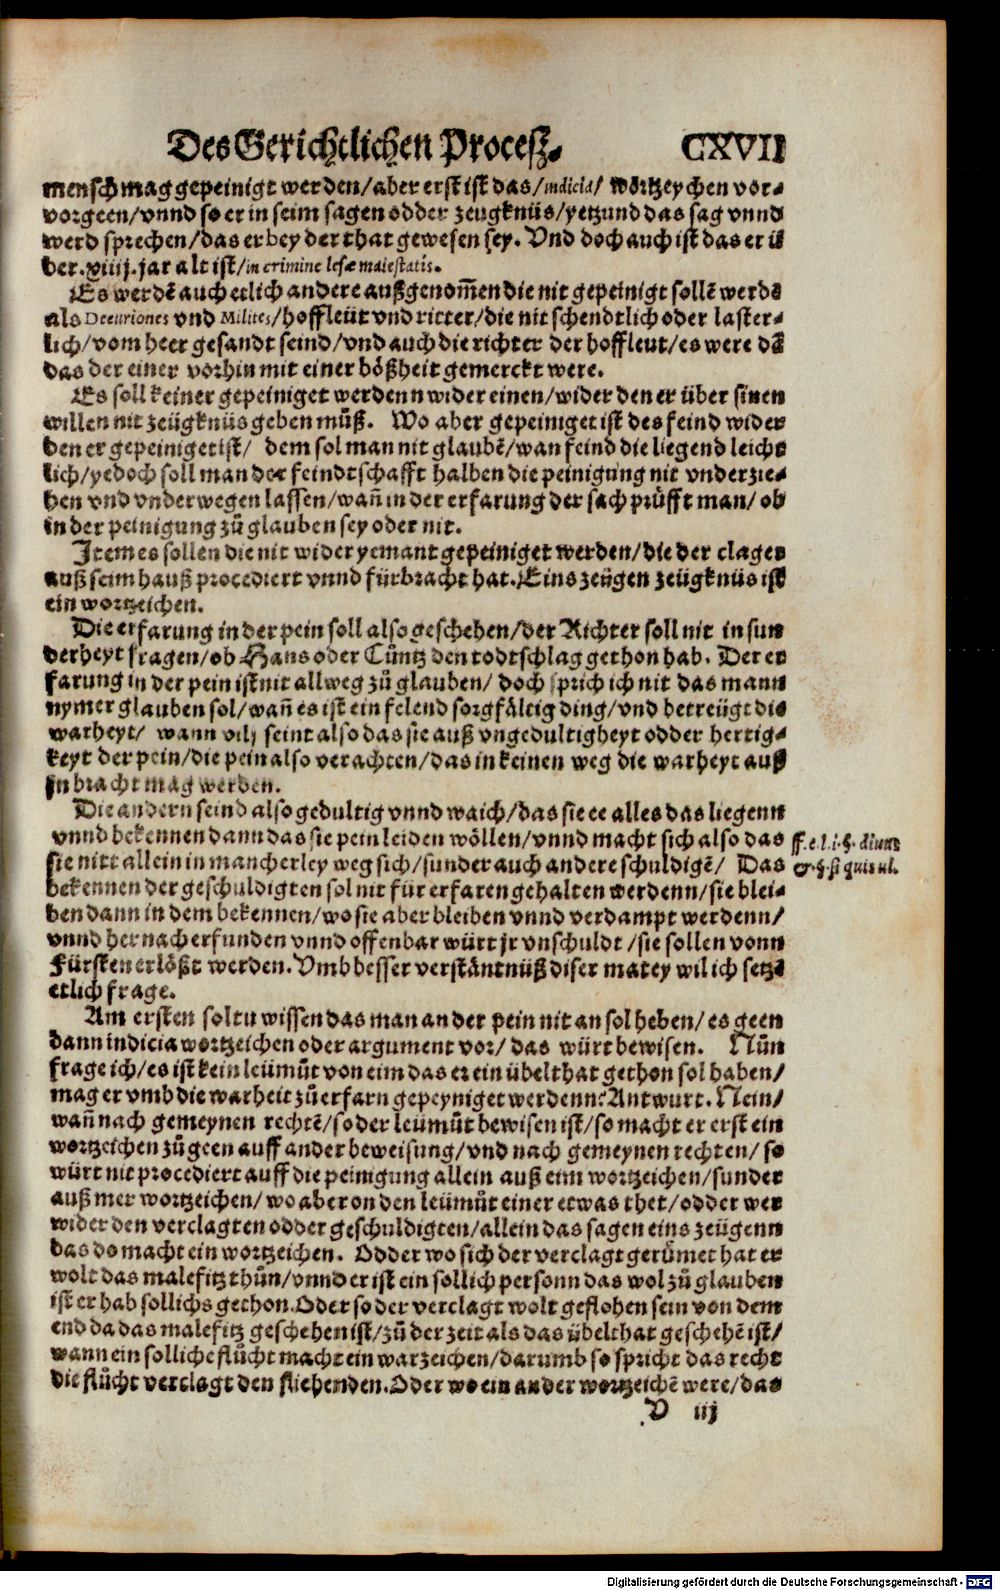 Des Gerichtlichen Procesz. CXVII
mensch mag gepeinigt werden/aber erst ist das/indicia/ wörtzeychen vor-
vorgeen/vnnd so er in seim sagen odder zeugknüs/yetzund das sag vnnd
werd sprechen/das er bey der that gewesen sey. Vnd doch auch ist das er ü
ber.xiiij.jar alt ist/in crimine lesæ maiestatis.
Es werdē auch etlich andere außgenom̄en die nit gepeinigt sollē werdē
als Decuriones vnd Milites/hoffleüt vnd ritter/die nit schendtlich oder laster-
lich/vom heer gesandt seind/vnd auch die richter der hoffleut/es were dā
das der einer vorhin mit einer bößheit gemerckt were.
Es soll keiner gepeiniget werdenn wider einen/wider den er über sinen
willen nit zeügknüs geben můß. Wo aber gepeiniget ist des feind wider
den er gepeiniget ist/ dem sol man nit glaubē/wan feind die liegend leicht
lich/yedoch soll man der feindtschafft halben die peinigung nit vnderzie-
hen vnd vnderwegen lassen/wañ in der erfarung der sach prüfft man/ ob
in der peinigung zů glauben sey oder nit.
Item es sollen die nit wider yemant gepeiniget werden/die der clager
auß seim hauß procediert vnnd fürbracht hat. Eins zeügen zeügknüs ist
ein wortzeichen.
Die erfarung in der pein soll also geschehen/der Richter soll nit in sun
derheyt fragen/ob Hans oder Cůntz den todtschlag gethon hab. Der er
farung in der pein ist nit allweg zů glauben/ doch sprich ich nit das mann
nymer glauben sol/wañ es ist ein felend sorgfältig ding/vnd betreügt die
warheyt/ wann vil seint also das sie auß vngedultigheyt odder hertig-
keyt der pein/die pein also verachten/das in keinen weg die warheyt auß
jn bracht mag werden.
Die andern seind also gedultig vnnd waich/das sie ee alles das liegenn
vnnd bekennen dann das sie pein leiden wöllen/vnnd macht sich also das
ff. e. l. i. §. diuus
sie nitt allein in mancherley weg sich/sunder auch andere schuldigē/ Das
& §. si quis ul.
bekennen der geschuldigten sol nit für erfaren gehalten werdenn/sie blei-
ben dann in dem bekennen/wo sie aber bleiben vnnd verdampt werdenn/
vnnd hernach erfunden vnnd offenbar würt jr vnschuldt /sie sollen vonn
Fürsten erlößt werden. Vmb besser verstäntnüß diser matery wil ich setzē
etlich frage.
Am ersten soltu wissen das man an der pein nit an sol heben/ es geen
dann indicia wortzeichen oder argument vor/ das würt bewisen. Nůn
frage ich/es ist kein leümůt von eim das er ein übelthat gethon sol haben/
mag er vmb die warheit zů erfarn gepeyniget werdenn? Antwurt. Nein/
wañ nach gemeynen rechtē/so der leümůt bewisen ist/so macht er erst ein
wortzeichen zů geen auff ander beweisung/vnd nach gemeynen rechten/ so
würt nit procediert auff die peinigung allein auß eim wortzeichen/sunder
auß mer wortzeichen/wo aber on den leümůt einer etwas thet/odder wer
wider den verclagten odder geschuldigten/allein das sagen eins zeügenn
das do macht ein wortzeichen. Odder wo sich der verclagt gerůmet hat er
wolt das malefitz thůn/vnnd er ist ein sollich personn das wol zů glauben
ist er hab sollichs gethon. Oder so der verclagt wolt geflohen sein von dem
end da das malefitz geschehen ist/zů der zeit als das übelthat geschehē ist/
wann ein solliche flůcht macht ein warzeichen/darumb so spricht das recht
die flůcht verclagt den fliehenden. Oder wo ein ander wortzeichē were/das
V iij
Digitalisierung gefördert durch die Deutsche Forschungsgemeinschaft - DFG